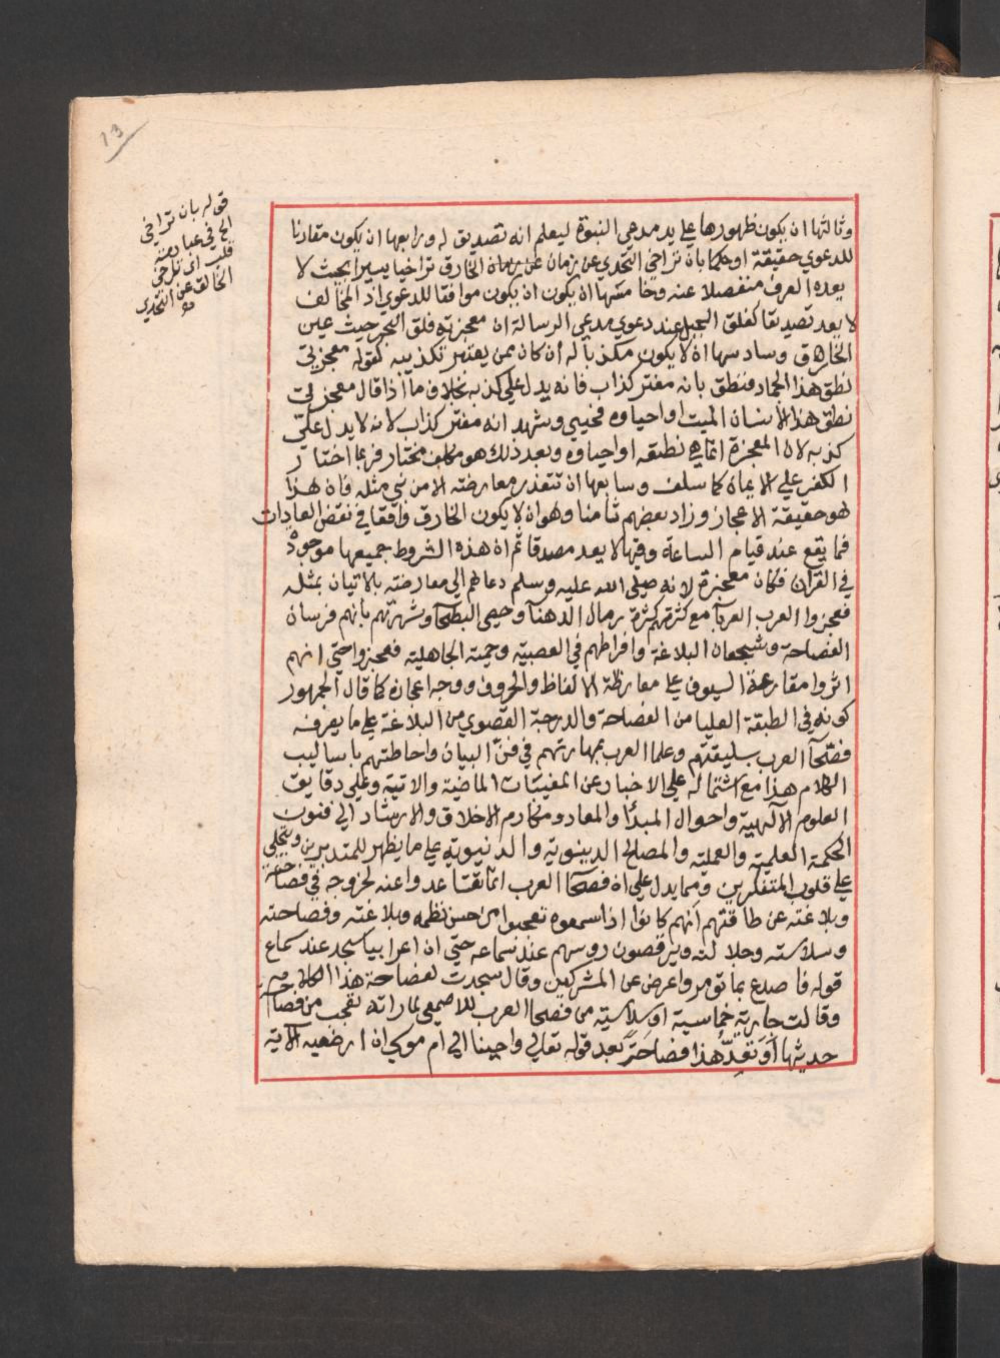 13
قوله بان تراخي
الخ في عبارته
قلب اي تراخي
الخارق عن التحدي
وثالثها ان يكون ظهورها علي يد مدعي النبوة ليعلم انه تصديق له ورابعها ان يكون مقارنا
للدعوي حقيقة او حكما بان تراخي التحدي عن زمان الخارق تراخيا يسيرا بحيث لا
يعده العرف منفصلا عنه وخامسها ان يكون ان يكون موافقا للدعوي اذ المخالف
لا يعد تصديقا كفلق الجبل عند دعوي مدعي الرسالة ان معجزته فلق البحر حيث عين
الخارق وسادسها ان لا يكون مكذبا له ان كان ممن يعتبر تكذيبه كقوله معجزتي
نطق هذا الجماد فنطق بانه مفتر كذاب فانه يدل علي كذبه بخلاف ما اذا قال معجزتي
نطق هذا الانسان الميت او احياوه فحيي وشهد انه مفتر كذاب لانه لا يدل علي
كذبه لان المعجزة انما هي نطقه او احياوه وبعد ذلك هو مكلف مختار فربما اختار
الكفر علي الايمان كما سلف وسابعها ان تتعذر معارضته الا من نبي مثله فان هذا
هو حقيقة الاعجاز وزاد بعضهم ثامنا وهو ان لا يكون الخارق واقعا في نقض العادات
فما يقع عند قيام الساعة وفيها لا يعد مصدقا ثم ان هذه الشروط جميعها موجودة
في القران فكان معجزة لانه صلي الله عليه وسلم دعاهم الي معارضته بالاتيان بمثله
فعجزوا العرب العربآ مع كثرتهم كثرة رمال الدهنآ وحصي البطحآ وشهرتهم بانهم فرسان
الفصاحة وشجعان البلاغة وافراطهم في العصبية وحمية الجاهلية فعجزوا حتي انهم
اثروا مقارعة السيوف علي معارضة الالفاظ والحروف ووجه اعجازه كما قال الجمهور
كونه في الطبقة العليا من الفصاحة والدرجة القصوي من البلاغة علي ما يعرفه
فصحآ العرب بسليقتهم وعلما العرب بمهارتهم في فن البيان واحاطتهم باساليب
الكلام هذا مع اشتماله علي الاخبار عن المغيبات الماضية والاتية وعلي دقايق
العلوم الالهية واحوال المبدأ والمعاد ومكارم الاخلاق والارشاد الي فنون
الحكمة العلمية والعملية والمصالح الدينوية والدنيوية علي ما يظهر للمتدبرين ويتجلي
علي قلوب المتفكرين ومما يدل علي ان فصحآ العرب انما تقاعدوا عنه لخروجه في فصاحته
وبلاغته عن طاقتهم انهم كانوا اذا سمعوه تعجبوا من حسن نظمه وبلاغته وفصاحته
وسلاسته وجلالته ويرقصون روسهم عند سماعه حتي ان اعرابيا سجد عند سماع
قوله فاصدع بما تومر واعرض عن المشركين وقال سجدت لفصاحة هذا الكلام
وقالت جارية خماسية او سداسية من فصحا العرب للاصمعي لما راته تعجب من فصاحة
حديثها أوَ تعدّ هذا فصاحة بعد قوله تعالي واوحينا الي ام موسي ان ارضعيه الاية